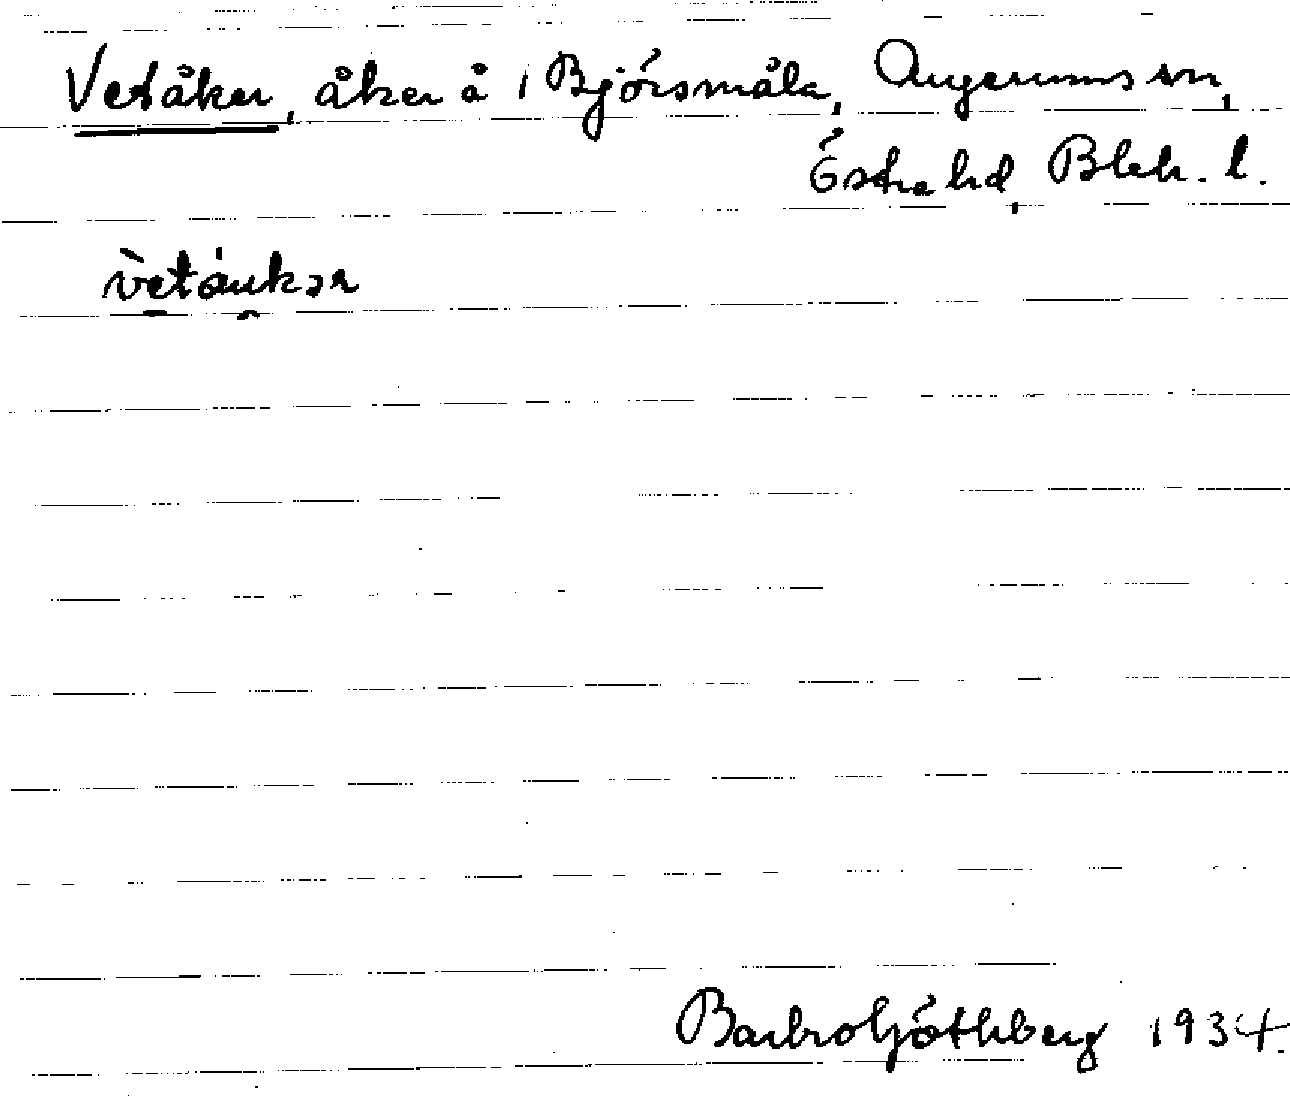 Vetåker, åker å 1 Björsmåla, Augerums sn,
Östra hd, Blek. l.
vètáukər
Barbro Göthberg 1934.